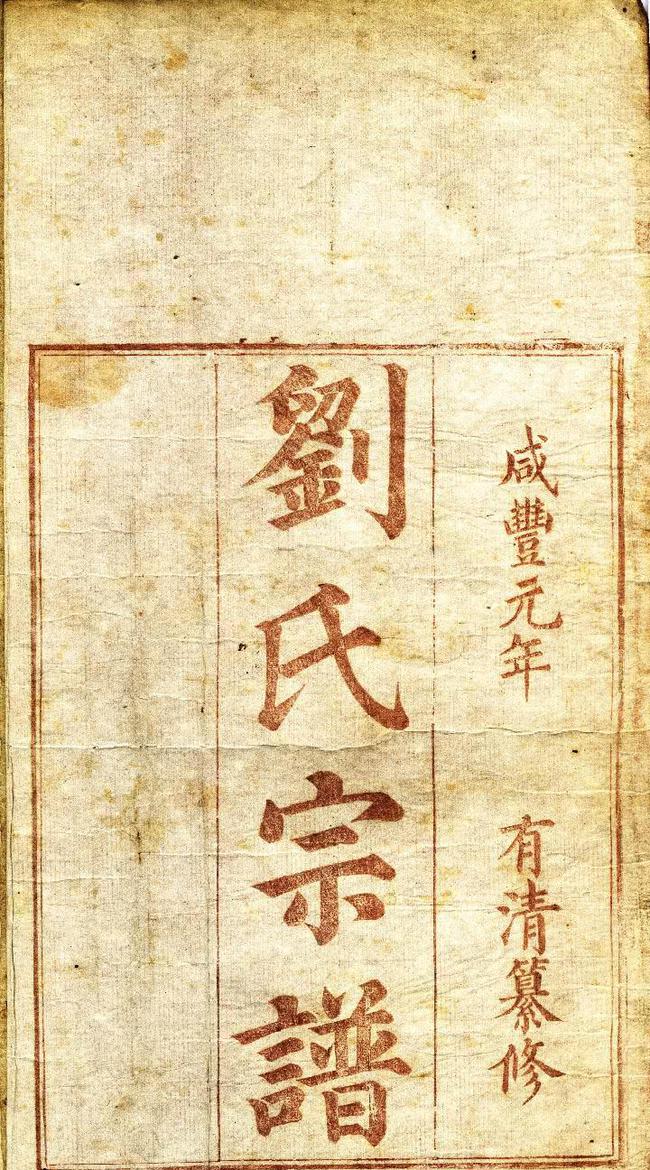 咸豐元年 有清纂修
劉氏宗譜